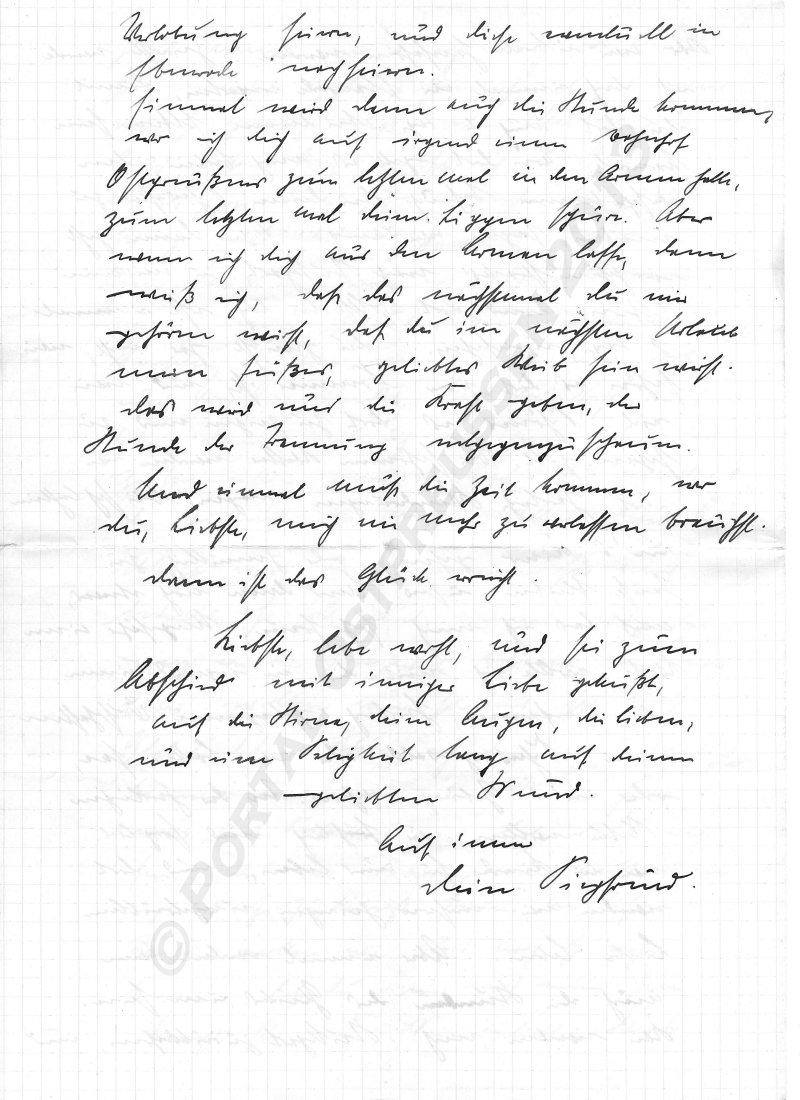 Verlobung feiern, und diese eventuell in
Ebenrode nachfeiern.
Einmal wird dann auch die Stunde kommen,
wo ich dich auf irgend einem Bahnhof
Ostpreußens zum letzten mal in den Armen halte,
zum letzten mal deine Lippen spüre. Aber
wenn ich dich aus den Armen lasse, dann
weiß ich, daß das nächstemal du mir
gehören wirst, daß du im nächsten Urlaub
mein süßes, geliebtes Weib sein wirst.
Das wird uns die Kraft geben, der
Stunde der Trennung entgegenzuschauen.
Und einmal muß die Zeit kommen, wo
du, Liebste, mich nie mehr zu verlassen brauchst.
Dann ist das Glück erreicht.
Liebste, lebe wohl, und sei zum
Abschied mit inniger Liebe geküßt,
auf die Stirne, deine Augen, die lieben,
und eine Seligkeit lang auf deinen
geliebten Mund.
Auf immer
dein Siegfried.
© PORTAL OSTPREUSSEN 2013